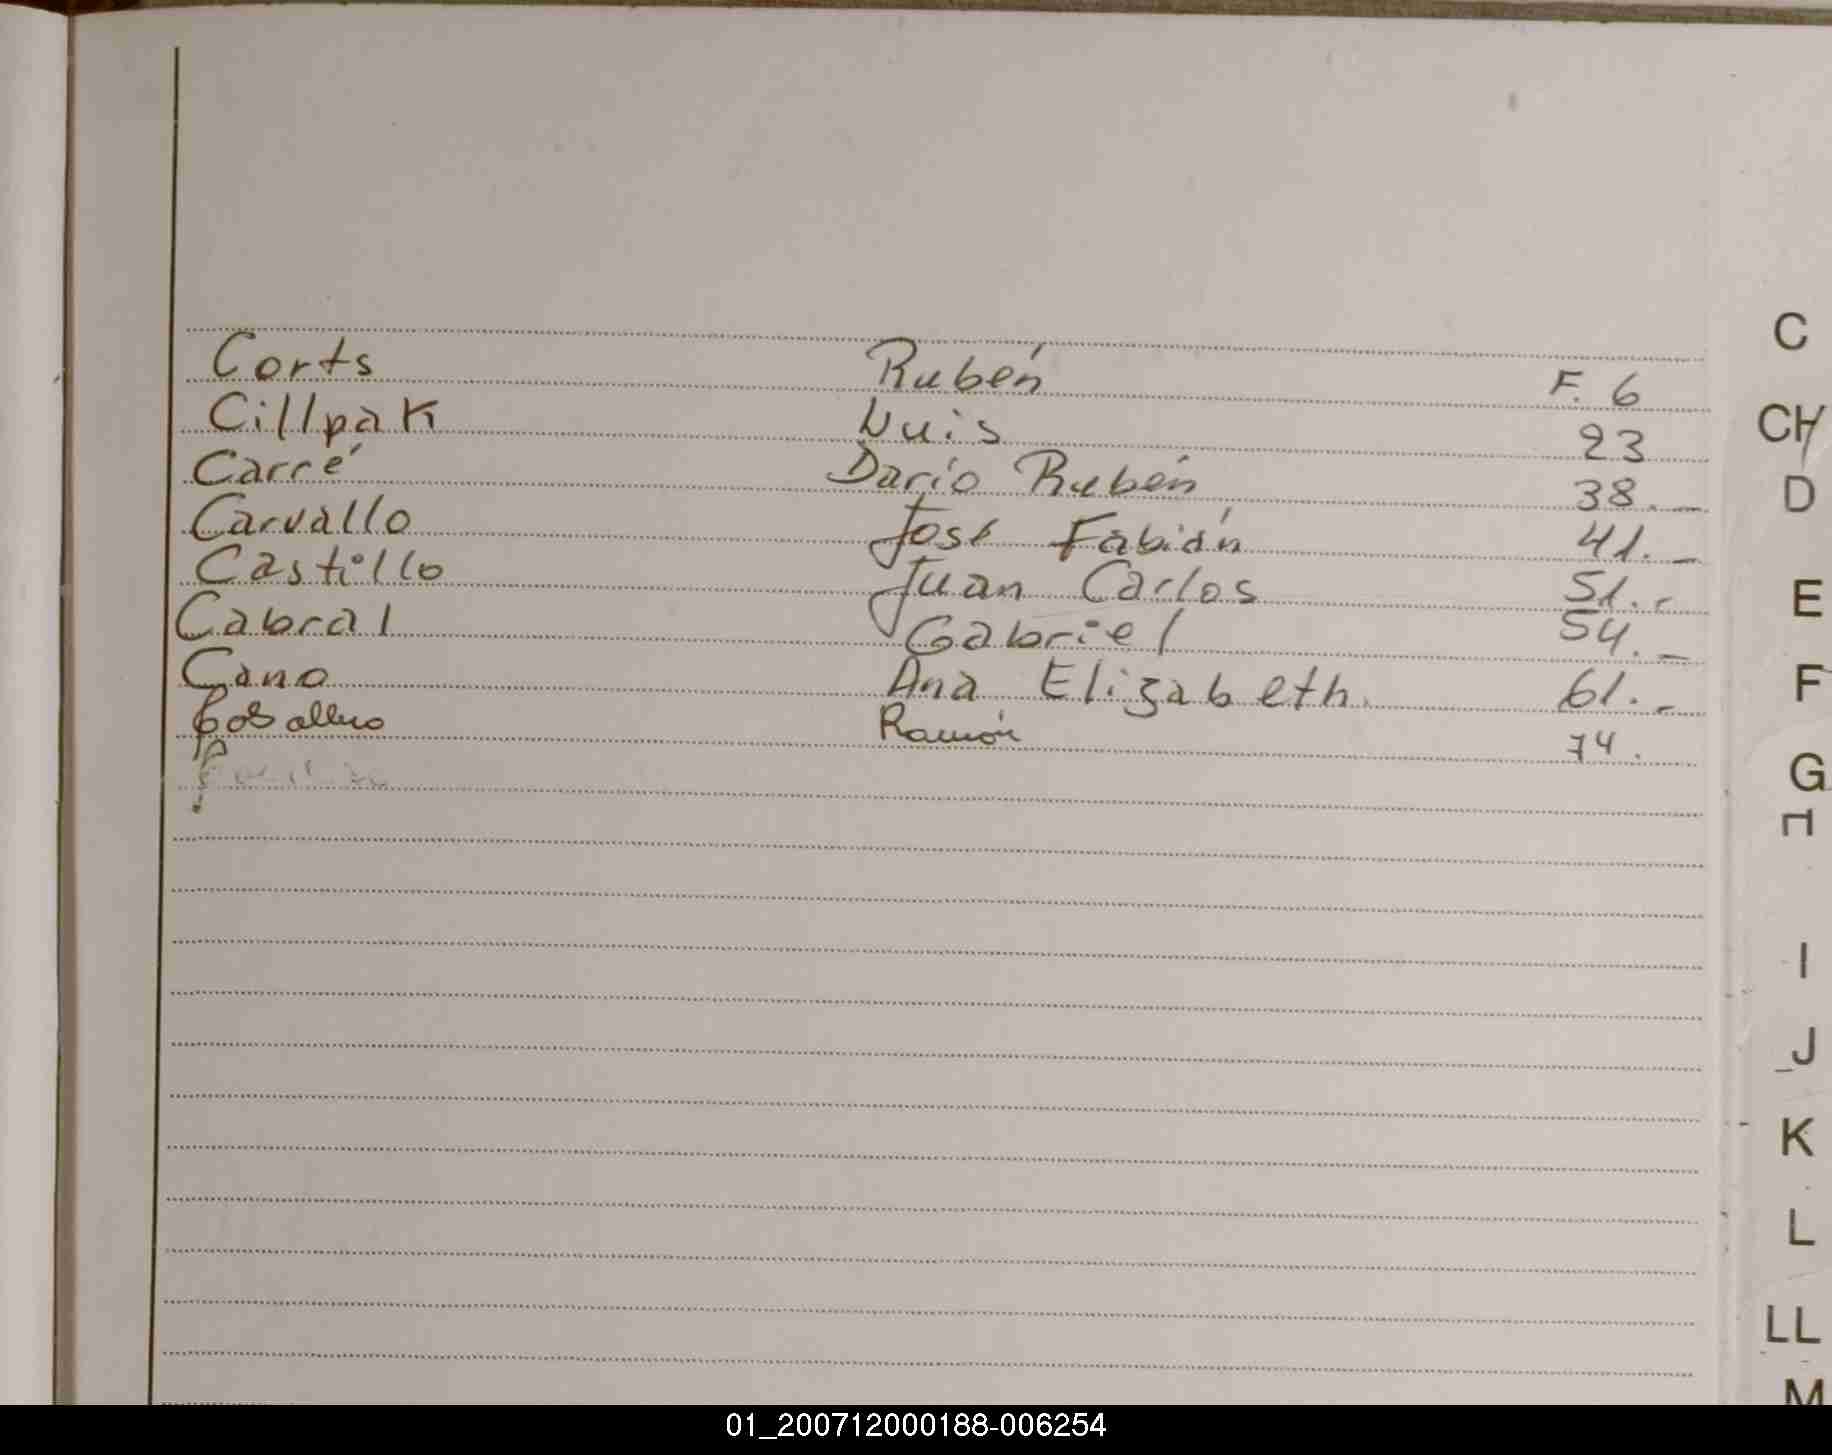 Corts Rubén F. 6
Cillpak Luis 23
Carré Darío Rubén 38.-
Carvallo José Fabián 41.-
Castillo Juan Carlos 51.-
Cabral Gabriel 54.-
Cano Ana Elizabeth. 61.-
Caballero Ramón 74.
C
CH
D
E
F
G
H
I
J
K
L
LL
M
01_200712000188-006254